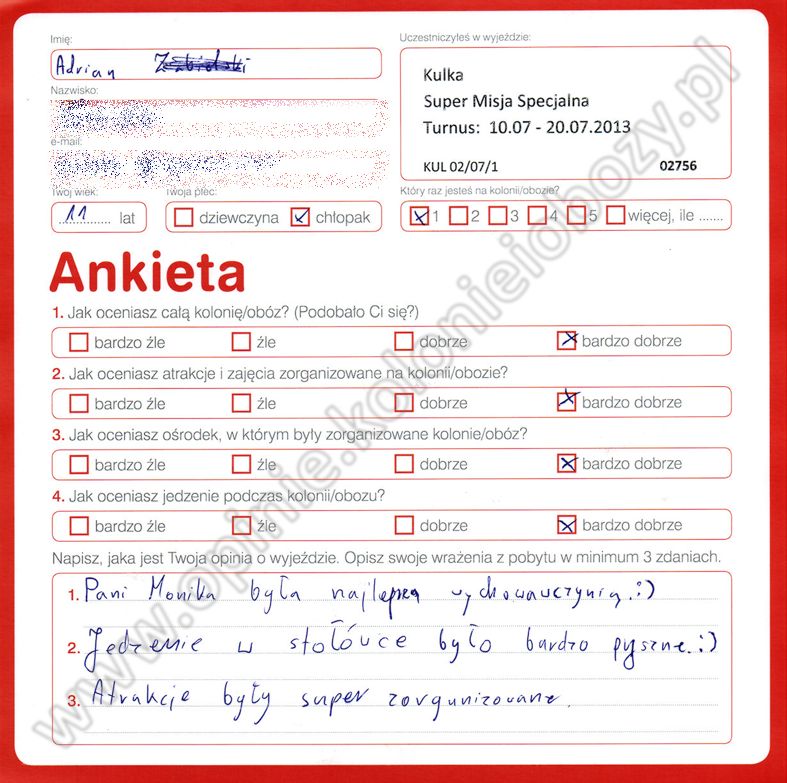 Imię:
Uczestniczyłeś w wyjeździe:
Adrian
Kulka
Super Misja Specjalna
Turnus: 10.07 - 20.07.2013
KUL 02/07/1 02756
Nazwisko:
e-mail:
Twój wiek:
Twoja płeć:
Który raz jesteś na kolonii/obozie?
11 lat
dziewczyna chłopak
1 2 3 4 5 więcej, ile .......
Ankieta
1. Jak oceniasz całą kolonię/obóz? (Podobało Ci się?)
bardzo źle źle dobrze bardzo dobrze
2. Jak oceniasz atrakcje i zajęcia zorganizowane na kolonii/obozie?
bardzo źle źle dobrze bardzo dobrze
3. Jak oceniasz ośrodek, w którym były zorganizowane kolonie/obóz?
bardzo źle źle dobrze bardzo dobrze
4. Jak oceniasz jedzenie podczas kolonii/obozu?
bardzo źle źle dobrze bardzo dobrze
Napisz, jaka jest Twoja opinia o wyjeździe. Opisz swoje wrażenia z pobytu w minimum 3 zdaniach.
1. Pani Monika była najlepszą wychowawczynią. :)
2. Jedzenie w stołówce było bardzo pyszne. :)
3. Atrakcje były super zorganizowane.
www.opinie.kolonieiobozy.pl